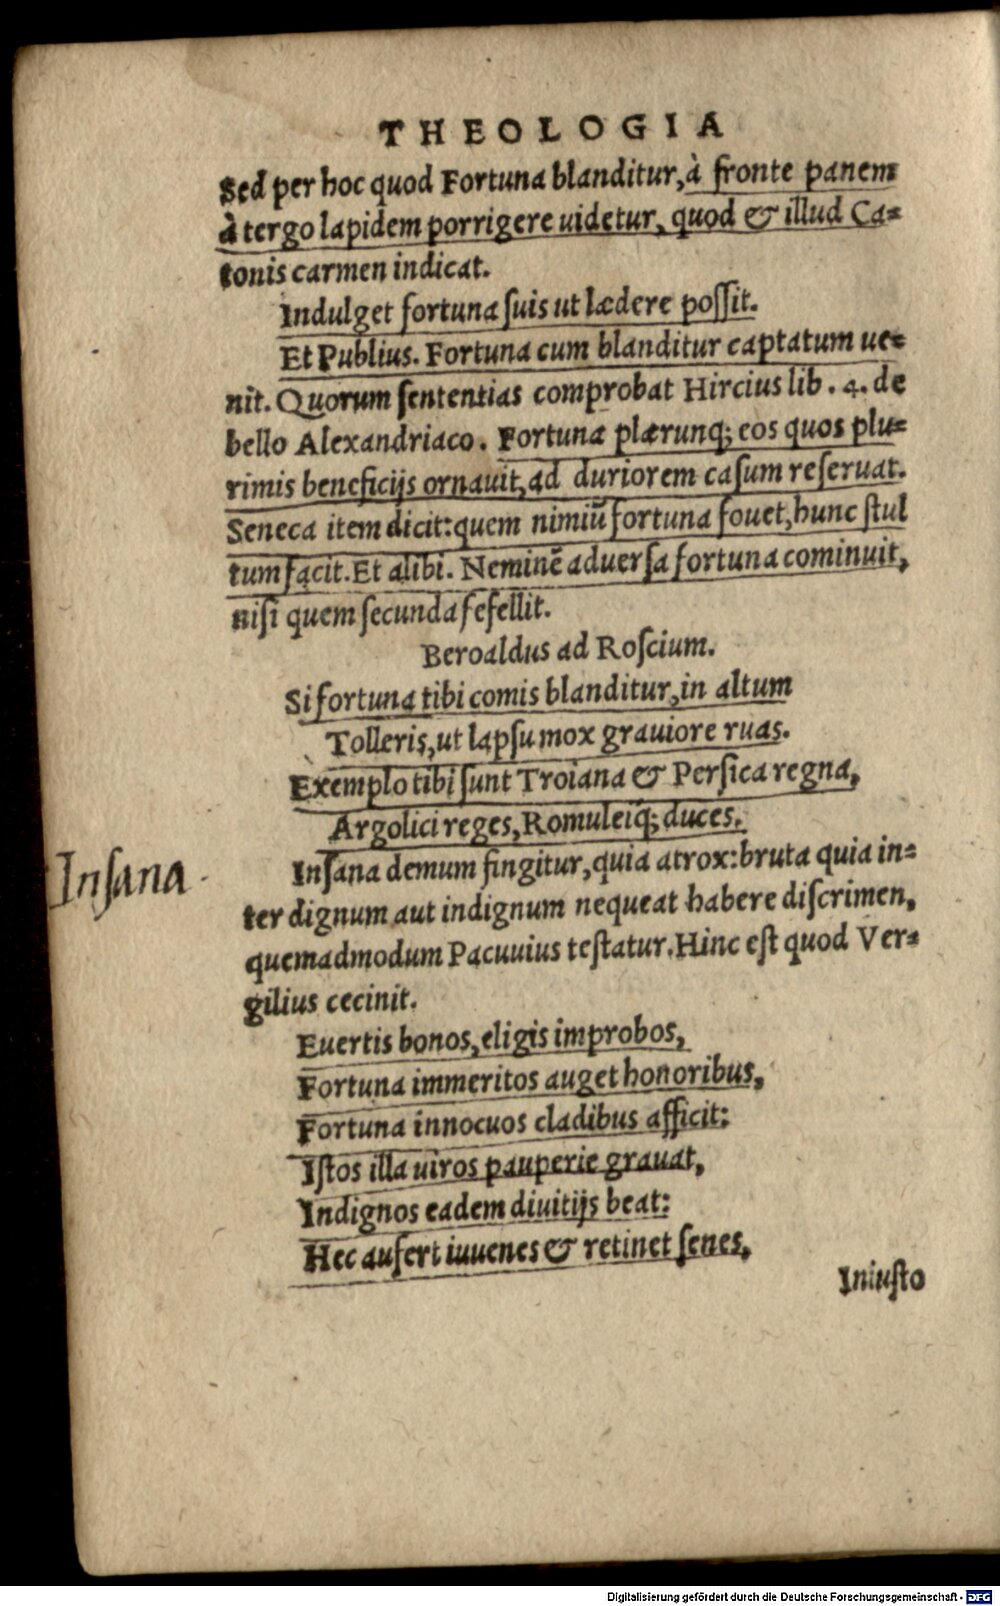 THEOLOGIA
Sed per hoc quod Fortuna blanditur, à fronte panem
à tergo lapidem porrigere uidetur, quod & illud Ca=
tonis carmen indicat.
Indulget fortuna suis ut lædere possit.
Et Publius. Fortuna cum blanditur captatum ue=
nit. Quorum sententias comprobat Hircius lib. 4. de
bello Alexandriaco. Fortuna plærunq; eos quos plu=
rimis beneficijs ornauit, ad duriorem casum reseruat.
Seneca item dicit: quem nimiũ fortuna fouet, hunc stul
tum facit. Et alibi. Neminẽ aduersa fortuna cominuit,
nisi quem secunda fefellit.
Beroaldus ad Roscium.
Si fortuna tibi comis blanditur, in altum
Tolleris, ut lapsu mox grauiore ruas.
Exemplo tibi sunt Troiana & Persica regna,
Argolici reges, Romuleiq; duces.
Insana demum fingitur, quia atrox: bruta quia in=
Insana
ter dignum aut indignum nequeat habere discrimen,
quemadmodum Pacuuius testatur. Hinc est quod Ver=
gilius cecinit.
Euertis bonos, eligis improbos,
Fortuna immeritos auget honoribus,
Fortuna innocuos cladibus afficit:
Istos illa uiros pauperie grauat,
Indignos eadem diuitijs beat:
Hec aufert iuuenes & retinet senes,
Iniusto
Digitalisierung gefördert durch die Deutsche Forschungsgemeinschaft - DFG